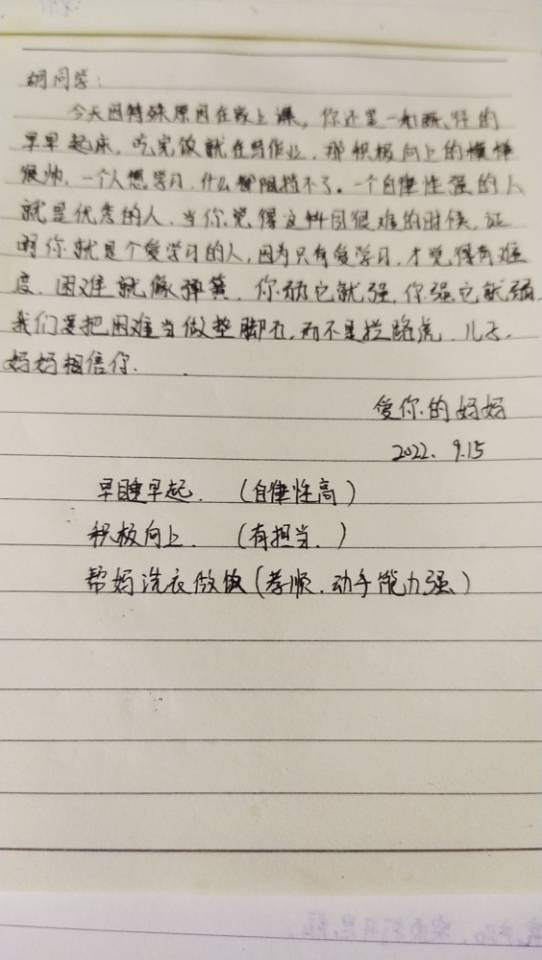 胡同学：
今天因特殊原因在家上课，你还是一如既往的
早早起床，吃完饭就在写作业，那积极向上的模样
很帅，一个人想学习，什么都阻挡不了。一个自律性强的人
就是优秀的人，当你觉得这科目很难的时候，证
明你就是个爱学习的人，因为只有爱学习，才觉得有难
度，困难就像弹簧，你弱它就强，你强它就弱，
我们要把困难当做垫脚石，而不是拦路虎，儿子，
妈妈相信你．
爱你的妈妈
2022、9.15
早睡早起．（自律性高）
积极向上．（有担当．）
帮妈洗衣做饭（孝顺．动手能力强）